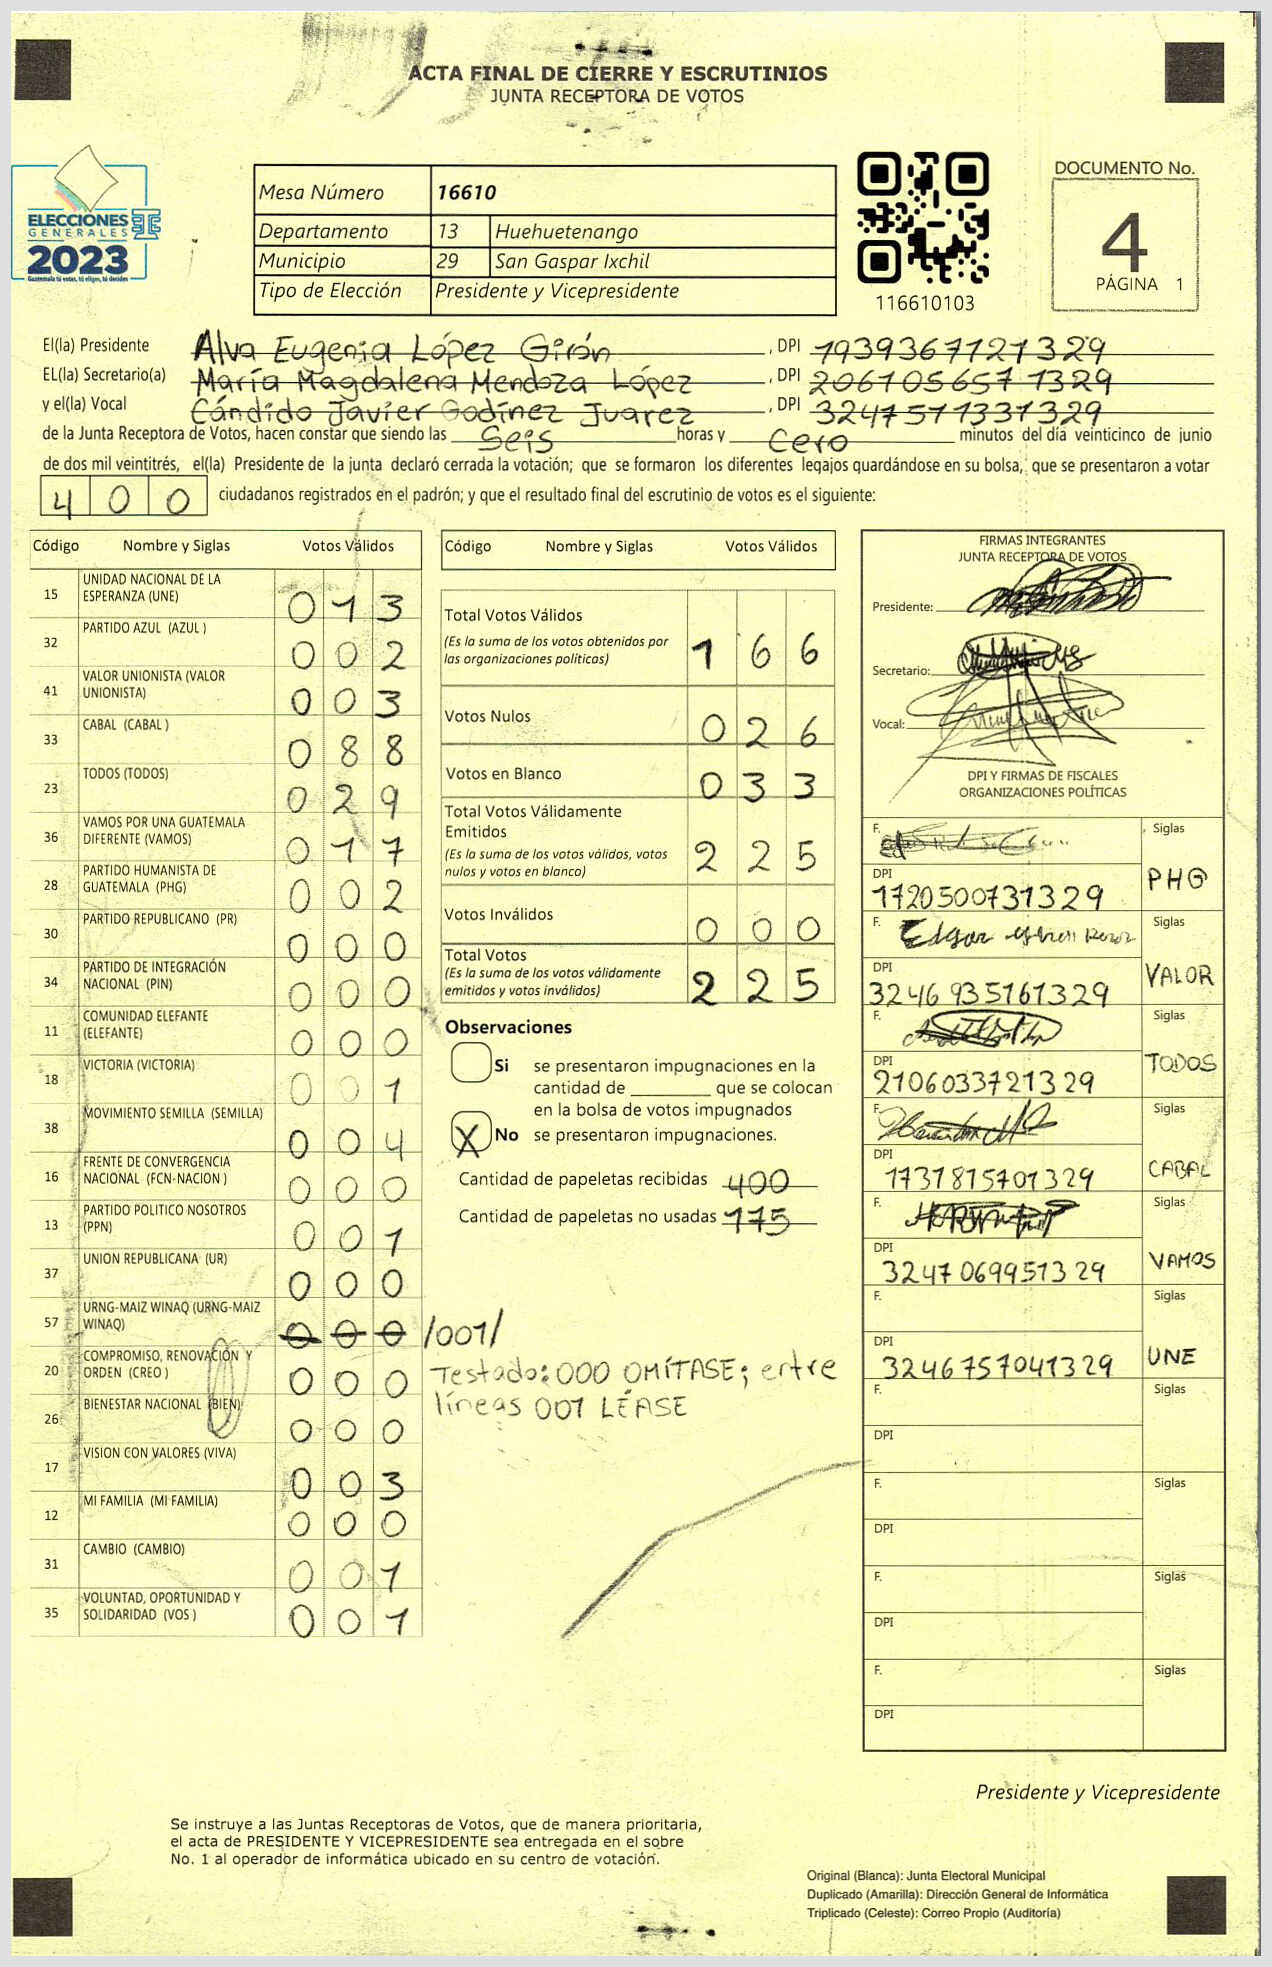 ACTA FINAL DE CIERRE Y ESCRUTINIOS
JUNTA RECEPTORA DE VOTOS
ELECCIONES
GENERALES
2023
Guatemala tú votas, tú eliges, tú decides
Mesa Número 16610
Departamento 13 Huehuetenango
Municipio 29 San Gaspar Ixchil
Tipo de Elección Presidente y Vicepresidente
116610103
DOCUMENTO No.
4
PÁGINA 1
El(la) Presidente Alva Eugenia López Girón, DPI 1939367121329
EL(la) Secretario(a) María Magdalena Mendoza López, DPI 2061056571329
y el(la) Vocal Cándido Javier Godínez Juarez, DPI 3247571331329
de la Junta Receptora de Votos, hacen constar que siendo las Seis horas y Cero minutos del día veinticinco de junio
de dos mil veintitrés, el(la) Presidente de la junta declaró cerrada la votación; que se formaron los diferentes legajos guardándose en su bolsa, que se presentaron a votar
400 ciudadanos registrados en el padrón; y que el resultado final del escrutinio de votos es el siguiente:
Código Nombre y Siglas Votos Válidos
15 UNIDAD NACIONAL DE LA ESPERANZA (UNE) 013
32 PARTIDO AZUL (AZUL ) 002
41 VALOR UNIONISTA (VALOR UNIONISTA) 003
33 CABAL (CABAL ) 088
23 TODOS (TODOS) 029
36 VAMOS POR UNA GUATEMALA DIFERENTE (VAMOS) 017
28 PARTIDO HUMANISTA DE GUATEMALA (PHG) 002
30 PARTIDO REPUBLICANO (PR) 000
34 PARTIDO DE INTEGRACIÓN NACIONAL (PIN) 000
11 COMUNIDAD ELEFANTE (ELEFANTE) 000
18 VICTORIA (VICTORIA) 001
38 MOVIMIENTO SEMILLA (SEMILLA) 004
16 FRENTE DE CONVERGENCIA NACIONAL (FCN-NACION ) 000
13 PARTIDO POLITICO NOSOTROS (PPN) 001
37 UNION REPUBLICANA (UR) 000
57 URNG-MAIZ WINAQ (URNG-MAIZ WINAQ) 000 /001/
20 COMPROMISO, RENOVACIÓN Y ORDEN (CREO ) 000
26 BIENESTAR NACIONAL (BIEN) 000
17 VISION CON VALORES (VIVA) 003
12 MI FAMILIA (MI FAMILIA) 000
31 CAMBIO (CAMBIO) 001
35 VOLUNTAD, OPORTUNIDAD Y SOLIDARIDAD (VOS ) 001
Código Nombre y Siglas Votos Válidos
Total Votos Válidos 166
(Es la suma de los votos obtenidos por
las organizaciones políticas)
Votos Nulos 026
Votos en Blanco 033
Total Votos Válidamente
Emitidos 225
(Es la suma de los votos válidos, votos
nulos y votos en blanco)
Votos Inválidos 000
Total Votos 225
(Es la suma de los votos válidamente
emitidos y votos inválidos)
Observaciones
Si se presentaron impugnaciones en la
cantidad de ________ que se colocan
en la bolsa de votos impugnados
X No se presentaron impugnaciones.
Cantidad de papeletas recibidas 400
Cantidad de papeletas no usadas 175
Testado: 000 OMÍTASE; entre
líneas 001 LÉASE
FIRMAS INTEGRANTES
JUNTA RECEPTORA DE VOTOS
Presidente:
Secretario:
Vocal:
DPI Y FIRMAS DE FISCALES
ORGANIZACIONES POLÍTICAS
F. Siglas
DPI 1720500731329 PHG
F. Edgar Siglas
DPI 3246935161329 VALOR
F. Siglas
DPI 2106033721329 TODOS
F. Siglas
DPI 1731815701329 CABAL
F. Siglas
DPI 3247069951329 VAMOS
F. Siglas
DPI 3246757041329 UNE
F. Siglas
DPI
F. Siglas
DPI
F. Siglas
DPI
F. Siglas
DPI
Presidente y Vicepresidente
Se instruye a las Juntas Receptoras de Votos, que de manera prioritaria,
el acta de PRESIDENTE Y VICEPRESIDENTE sea entregada en el sobre
No. 1 al operador de informática ubicado en su centro de votación.
Original (Blanca): Junta Electoral Municipal
Duplicado (Amarilla): Dirección General de Informática
Triplicado (Celeste): Correo Propio (Auditoría)